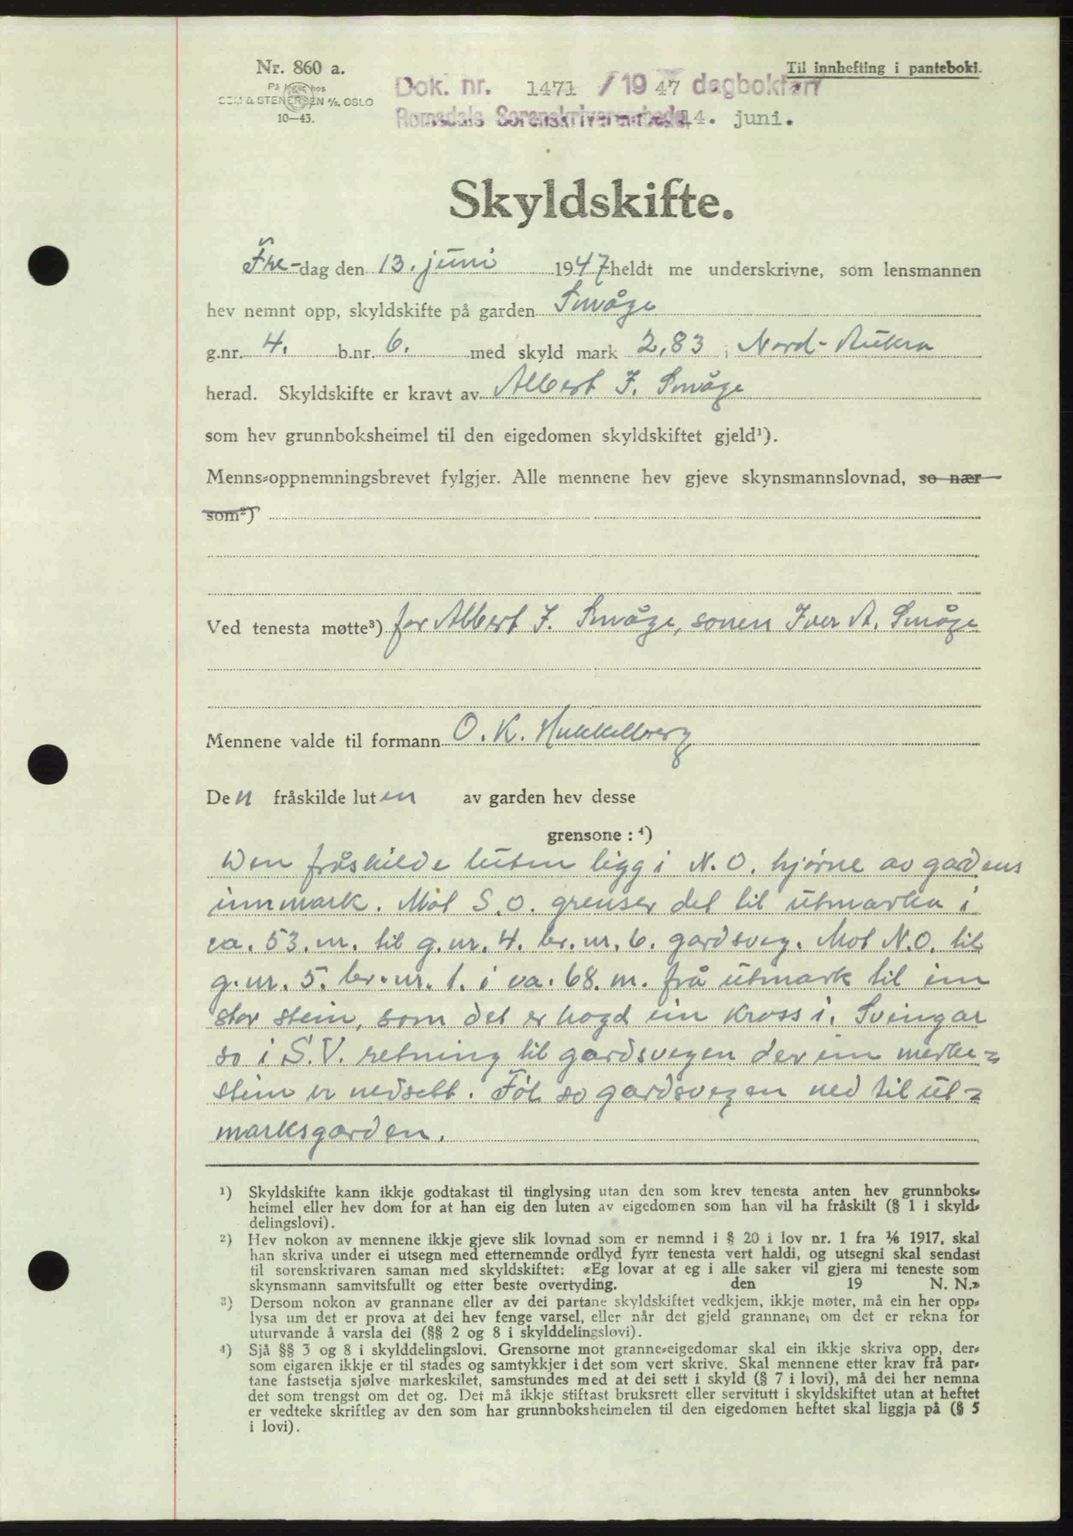 Nr. 860 a.
Til innhefting i pantebok.
På lager hos
SEM & STENERSEN A/S, OSLO
10—43.
Dok. nr. 1471 / 19 47 dagbokført
Romsdals Sorenskriverembede 14. juni.
Skyldskifte.
Fre-dag den 13. juni 1947 heldt me underskrivne, som lensmannen
hev nemnt opp, skyldskifte på garden Småge
g.nr. 4. b.nr. 6. med skyld mark 2,83 i Nord-Aukra
herad. Skyldskifte er kravt av Albert I. Småge
som hev grunnboksheimel til den eigedomen skyldskiftet gjeld¹).
Menns-oppnemningsbrevet fylgjer. Alle mennene hev gjeve skynsmannslovnad, so nær
som²)
Ved tenesta møtte³) for Albert I. Småge, sonen Iver A. Småge
Mennene valde til formann O. K. Hukkelberg
Den fråskilde luten av garden hev desse
grensone : ⁴)
Den fråskilde luten ligg i N.O. hjørne av gardens
innmark. Mot S.O. grenser det til utmarka i
ca. 53. m. til g.nr. 4. br.nr. 6. gardsveg. Mot N.O. til
g.nr. 5. br.nr. 1. i ca. 68. m. frå utmark til ein
stor stein, som det er hogd ein kross i. Svingar
so i S.V. retning til gardsvegen der ein merke-
stein er nedsett. Føl so gardsvegen ned til ut-
marksgarden.
¹) Skyldskifte kann ikkje godtakast til tinglysing utan den som krev tenesta anten hev grunnboks-
heimel eller hev dom for at han eig den luten av eigedomen som han vil ha fråskilt (§ 1 i skyld-
delingslovi).
²) Hev nokon av mennene ikkje gjeve slik lovnad som er nemnd i § 20 i lov nr. 1 fra ⅙ 1917, skal
han skriva under ei utsegn med etternemnde ordlyd fyrr tenesta vert haldi, og utsegni skal sendast
til sorenskrivaren saman med skyldskiftet: «Eg lovar at eg i alle saker vil gjera mi teneste som
skynsmann samvitsfullt og etter beste overtyding. den 19 N. N.»
³) Dersom nokon av grannane eller av dei partane skyldskiftet vedkjem, ikkje møter, må ein her opp-
lysa um det er prova at dei hev fenge varsel, eller når det gjeld grannane, om det er rekna for
uturvande å varsla dei (§§ 2 og 8 i skylddelingslovi).
⁴) Sjå §§ 3 og 8 i skylddelingslovi. Grensorne mot granne-eigedomar skal ein ikkje skriva opp, der-
som eigaren ikkje er til stades og samtykkjer i det som vert skrive. Skal mennene etter krav frå par-
tane fastsetja sjølve markeskilet, samstundes med at dei sett i skyld (§ 7 i lovi), må dei her nemna
det som trengst om det og. Det må ikkje stiftast bruksrett eller servitutt i skyldskiftet utan at heftet
er vedteke skriftleg av den som har grunnboksheimelen til den eigedomen heftet skal liggja på (§ 5
i lovi).